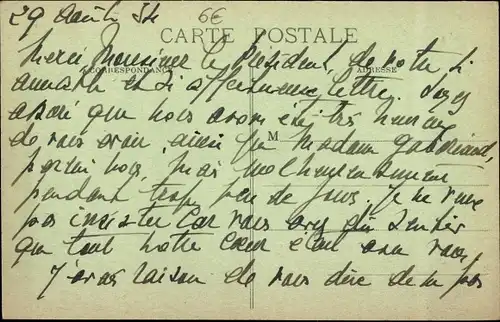 29 Août 34 6€
CARTE POSTALE
Merci Monsieur le Président, de votre si
CORRESPONDANCE ADRESSE
aimable et si affectueuse lettre. Soyez
assuré que nous avons été très heureux
de vous avoir, ainsi que Madame
M
parmi nous, mais malheureusement
pendant trop peu de jours. Je ne veux
pas insister car vous avez dû sentir
que tout notre cœur était avec vous,
J'avais raison de vous dire de ne pas